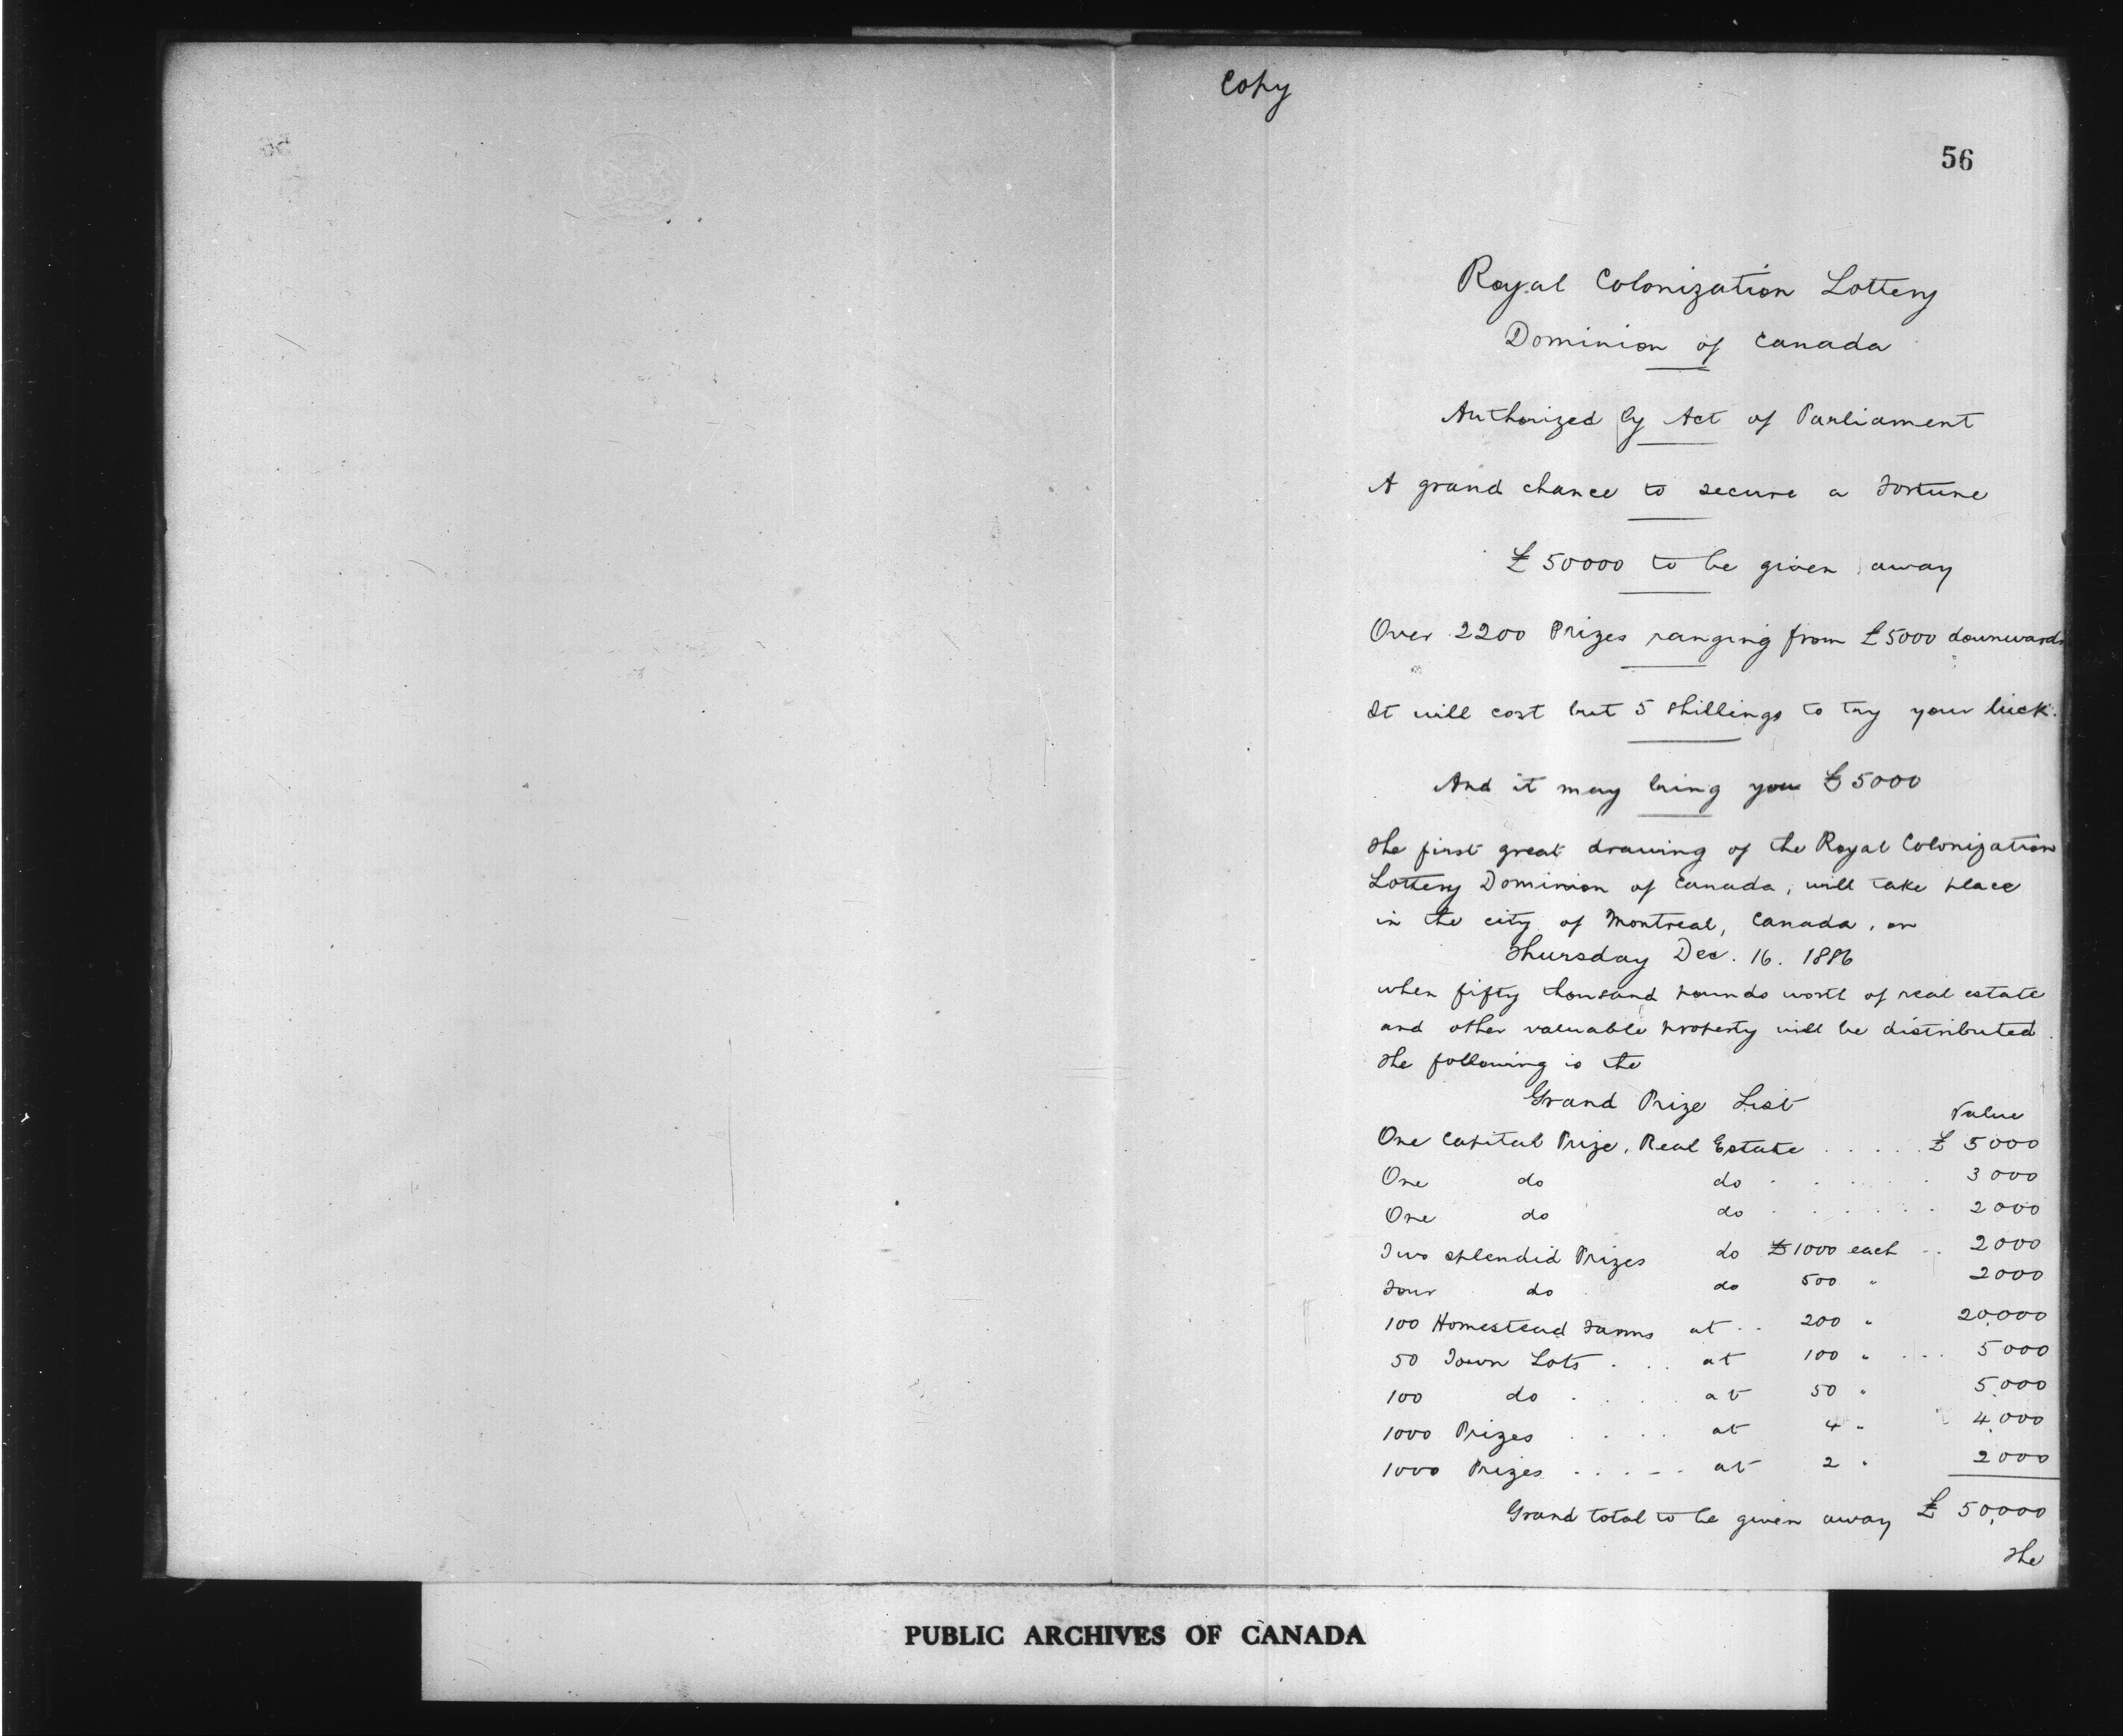 Copy
56
Royal Colonization Lottery
Dominion of Canada
Authorized by Act of Parliament
A grand chance to secure a Fortune
£50000 to be given away
Over 2200 Prizes ranging from £5000 downwards
It will cost but 5 shillings to try your luck.
And it may bring you £5000
The first great drawing of the Royal Colonization
Lottery Dominion of Canada, will take place
in the city of Montreal, Canada, on
Thursday Dec. 16. 1886
when fifty thousand pounds worth of real estate
and other valuable property will be distributed.
The following is the
Grand Prize List
Value
One Capital Prize, Real Estate . . . . . £ 5000
One do do . . . . . . 3000
One do do . . . . . . 2000
Two splendid Prizes do £1000 each . . 2000
Four do do 500 " 2000
100 Homestead Farms at . . 200 " 20,000
50 Town Lots . . . at 100 " . . . 5000
100 do . . . . at 50 " 5,000
1000 Prizes . . . . at 4 " 4,000
1000 Prizes . . . . . at 2 " 2000
Grand total to be given away £ 50,000
The
PUBLIC ARCHIVES OF CANADA